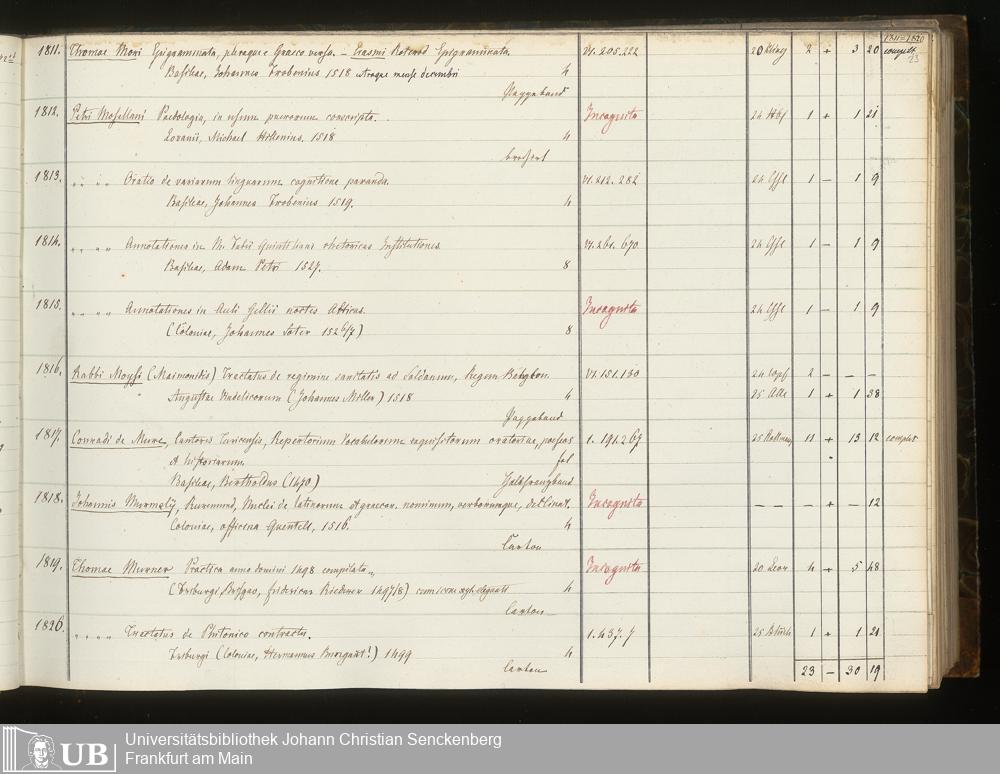 1811=1820
complt.
23
1811. Thomae Mori Epigrammata, pleraque e Graeco versa. – Erasmi Roterod. Epigrammata. VI. 205.222 20 2 + 3 20
Basileae, Johannes Frobenius 1518 utraque mense decembri 4
Pappeband
1812. Petri Mosellani Paedologia, in usum puerorum conscripta. Incognita 24 1 + 1 21
Lovanii, Michael Hillenius. 1518 4
broschirt
1813. " " " Oratio de variarum linguarum cognitione paranda. VI. 212. 282 24 1 – 1 9
Basileae, Johannes Frobenius 1519. 4
1814. " " " Annotationes in M. Fabii Quintiliani rhetoricas Institutiones. VI. 261. 670 24 1 – 1 9
Basileae, Adam Petri 1527. 8
1815. " " " Annotationes in Auli Gellii noctes Atticas. Incognita 24 1 – 1 9
(Coloniae, Johannes Soter 1526/7) 8
1816. Rabbi Moysi (Maimonidis) Tractatus de regimine sanitatis ad Soldanum, Regem Babylon. VI. 151. 130 24 2 – – –
Augustae Vindelicorum (Johannes Miller) 1518 4 25 1 + 1 38
Pappeband
1817. Conradi de Mure, Cantoris Turicensis, Repertorium Vocabulorum exquisitorum oratoriae, poeseos 1. 191. 267 25 11 + 13 12 complet
et historiarum fol
Basileae, Bertholdus (1470) Halbfranzband
1818. Johannis Murmelij, Ruremund, Nuclei de latinorum et graecor. nominum, verborumque, declinat. Incognita – – – + – 12
Coloniae, officina Quentell, 1516. 4
Carton
1819. Thomae Murner Practica anno domini 1498 compilata Incognita 20 4 + 5 48
(Friburgi, Brisgav, fridericus Riedrer 1497/8) cum icone xyl. eleganti 4
Carton
1820. " " " Tractatus de Phitonico contractu. 1. 437. 7 25 1 + 1 21
Friburgi (Coloniae, Hermannus Bungart!) 1499 4
Carton 23 – 30 19
UB Universitätsbibliothek Johann Christian Senckenberg
Frankfurt am Main